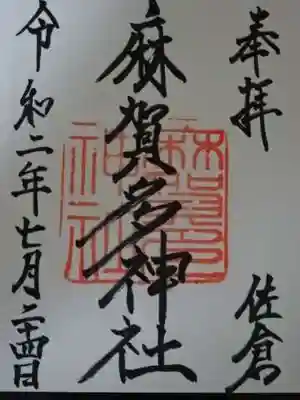 奉拝
佐倉
麻賀多神社
令和二年七月二十四日